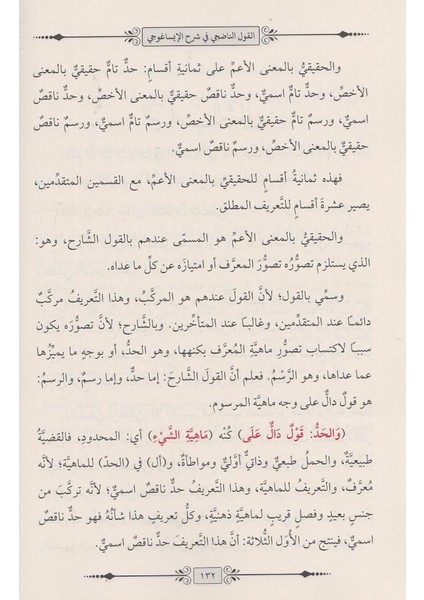 القول الناضجي في شرح الإيساغوجي
والحقيقيُّ بالمعنى الأعمِّ على ثمانيةِ أقسامٍ: حدٌّ تامٌّ حقيقيٌّ بالمعنى
الأخصِّ، وحدٌّ تامٌّ اسميٌّ، وحدٌّ ناقصٌ حقيقيٌّ بالمعنى الأخصِّ، وحدٌّ ناقصٌ
اسميٌّ، ورسمٌ تامٌّ حقيقيٌّ بالمعنى الأخصِّ، ورسمٌ تامٌّ اسميٌّ، ورسمٌ ناقصٌ
حقيقيٌّ بالمعنى الأخصِّ، ورسمٌ ناقصٌ اسميٌّ.
فهذه ثمانيةُ أقسامٍ للحقيقيِّ بالمعنى الأعمِّ، مع القسمين المتقدِّمين،
يصير عشرةَ أقسامٍ للتَّعريف المطلق.
والحقيقيُّ بالمعنى الأعمِّ هو المسمّى عندهم بالقول الشَّارح، وهو:
الذي يستلزم تصوُّرُه تصوُّرَ المعرَّف أو امتيازَه عن كلِّ ما عداه.
وسمِّي بالقول؛ لأنَّ القولَ عندهم هو المركَّبُ، وهذا التَّعريفُ مركَّبٌ
دائمًا عند المتقدِّمين، وغالبًا عند المتأخِّرين. وبالشَّارح؛ لأنَّ تصوُّرَه يكون
سببًا لاكتساب تصوُّرِ ماهيَّةِ المُعرَّف بكنهها، وهو الحدُّ، أو بوجهٍ ما يميِّزُها
عما عداها، وهو الرَّسْمُ. فعلم أنَّ القولَ الشَّارحَ: إما حدٌّ، وإما رسمٌ، والرسمُ:
هو قولٌ دالٌّ على وجه ماهيَّة المرسوم.
(وَالحَدُّ: قَوْلٌ دَالٌّ عَلَى) كُنْه (مَاهِيَّةِ الشَّيْءِ) أي: المحدودِ، فالقضيَّةُ
طبيعيَّةٌ، والحملُ طبعيٌّ وذاتيٌّ أوَّليٌّ ومواطأةٌ، و(أل) في (الحدّ) للماهيَّة؛ لأنَّه
مُعرَّفٌ، والتَّعريفُ للماهيَّة، وهذا التَّعريف حدٌّ ناقصٌ اسميٌّ؛ لأنَّه تركَّبَ من
جنسٍ بعيدٍ وفصلٍ قريبٍ لماهيَّةٍ ذهنيَّةٍ، وكلُّ تعريفٍ هذا شأنُهُ فهو حدٌّ ناقصٌ
اسميٌّ، فينتج من الأوَّل الثَّلاثة: أن هذا التَّعريفَ حدٌّ ناقصٌ اسميٌّ.
١٣٢